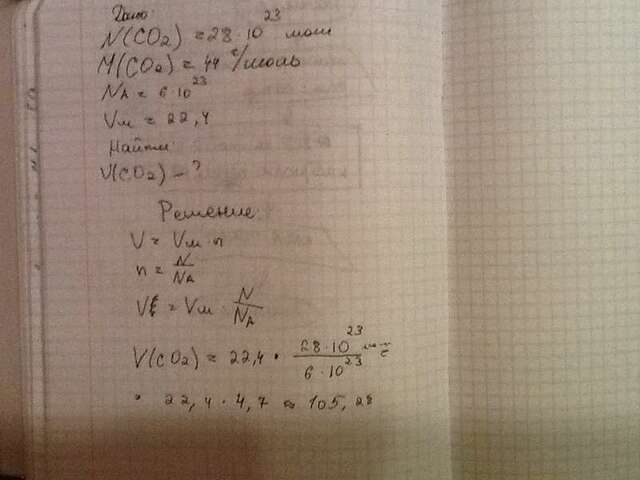 Дано:
N(CO2) = 28·10²³ мол
M(CO2) = 44 г/моль
NA = 6·10²³
Vм = 22,4
Найти:
V(CO2) – ?
Решение:
V = Vм · n
n = N/NA
V = Vм · N/NA
V(CO2) = 22,4 · 28·10²³/6·10²³
= 22,4 · 4,7 = 105,28